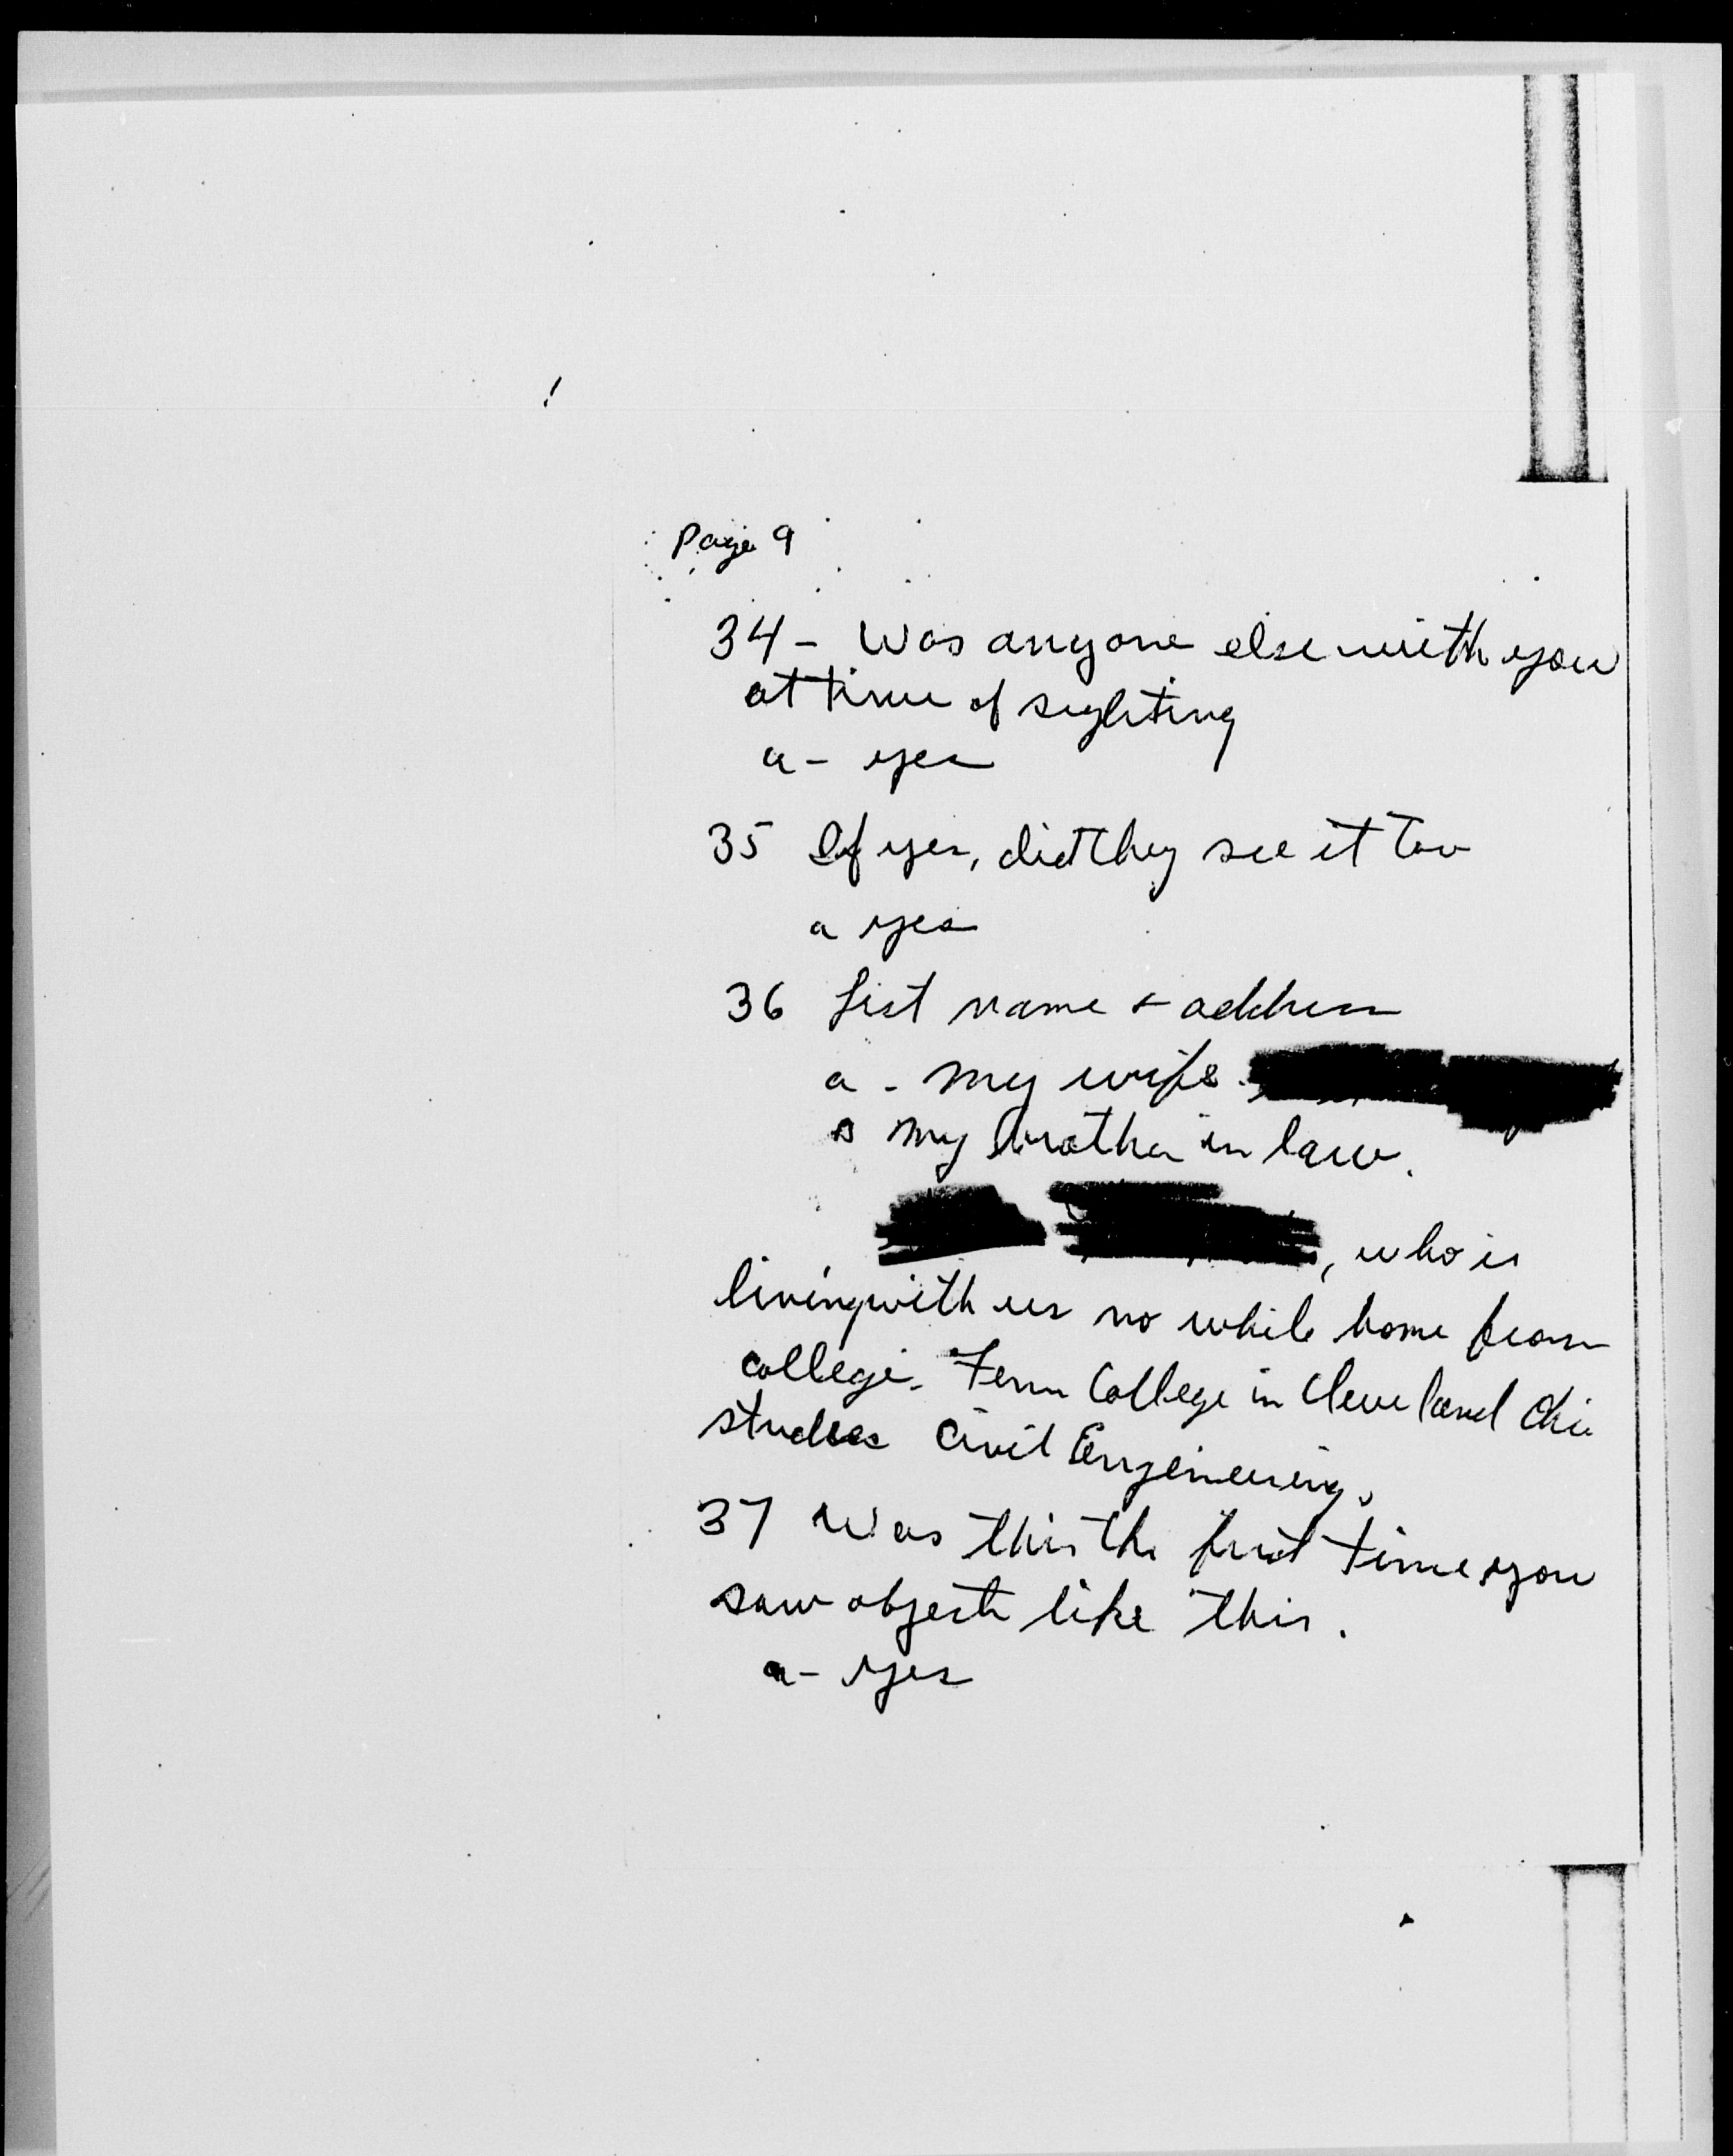 Page 9
34 - Was anyone else with you
at time of sighting
a - yes
35 If yes, did they see it too
a yes
36 List name & address
a - my wife
my brother in law.
, who is
living with us no while home from
college. Fenn College in Cleveland Ohio
studies Civil Engineering.
37 Was this the first time you
saw objects like this.
a - yes